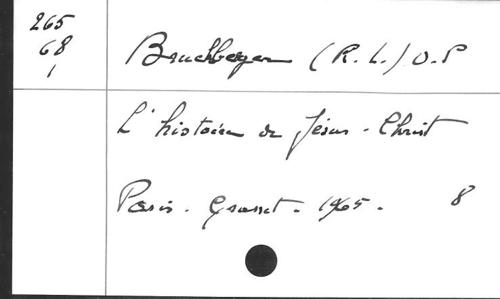 265
68
1
Bruckberger (R. L.) O.P
L'histoire de Jésus-Christ
Paris. Grasset. 1965. 8